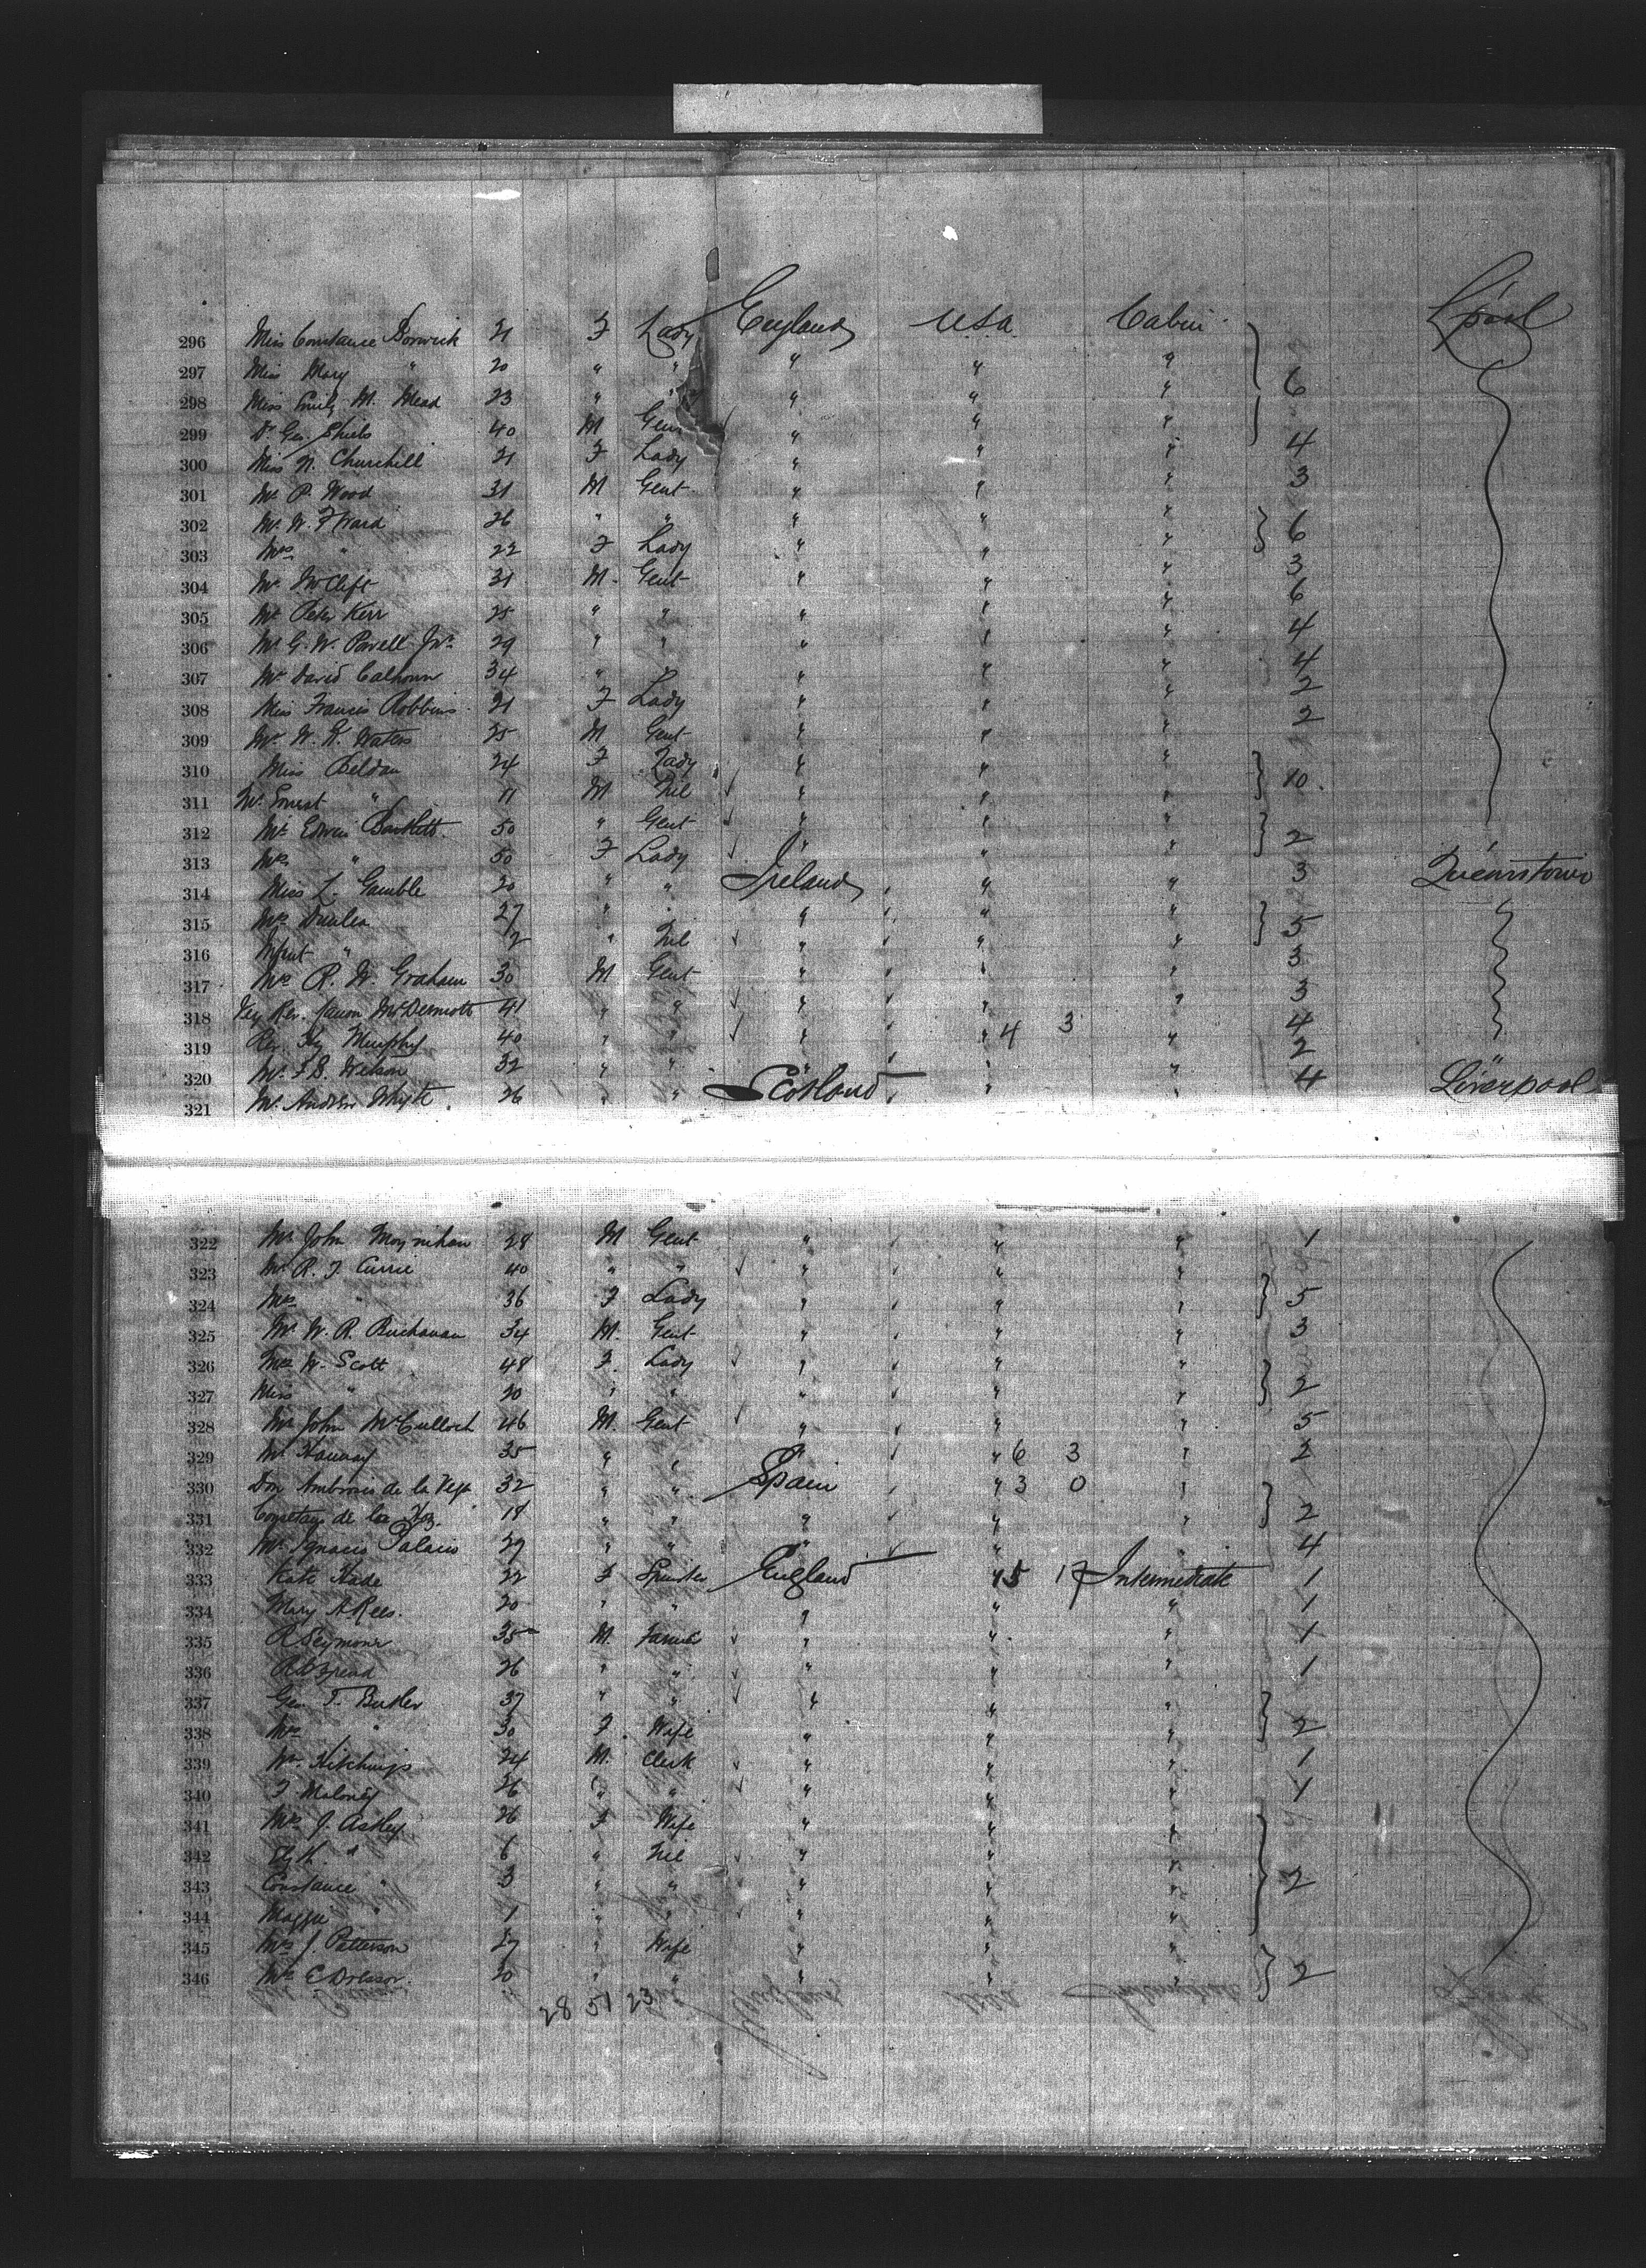 296 Miss Constance Borwick 21 F Lady England USA Cabin L'pool
297 Miss Mary " 20 " " " " "
298 Miss Emily M. Mead 23 " " " " " 6
299 Dr Geo. Shiels 40 M Gent " " "
300 Miss N. Churchill 21 F Lady " " " 4
301 Mr P. Wood 31 M Gent " " " 3
302 Mr W. F Ward 26 " " " " "
303 Mrs " 22 F Lady " " " 6
304 Mr Clift 31 M. Gent " " " 3
305 Mr Peter Kerr 25 " " " " " 6
306 Mr G. W. Powell Jnr 29 " " " " " 4
307 Mr David Calhoun 34 " " " " " 4
308 Miss Francis Robbins 21 F Lady " " " 2
309 Mr W. R. Waters 25 M Gent " " " 2
310 Miss Beldan 24 F Lady " " "
311 Mr Ernest " 11 M Nil " " " 10.
312 Mr Edwin Bartlett 50 " Gent " " "
313 Mrs " 50 F Lady " " " 2
314 Miss L. Gamble 20 " " Ireland " " 3 Queenstown
315 Mrs 27 " " " " "
316 Infant " 2 " Nil " " " 5
317 Mr R. W. Graham 30 M Gent " " " 3
318 Very Rev. Canon McDermott 41 " " " " " 3
319 Rev. Hy Murphy 40 " " " " 4 3 " 4
320 Mr F. S. Watson 32 " " " " " 2
321 Mr Andrew Whyte 26 " " Scotland " " 4 Liverpool
322 Mr John Moynihan 28 M Gent " " " 1
323 Mr R. J. Currie 40 " " " " "
324 Mrs " 36 F Lady " " " 5
325 Mr W. R. Buchanan 34 M. Gent " " " 3
326 Mrs W. Scott 48 F. Lady " " "
327 Miss " 20 " " " " " 2
328 Mr John McCulloch 46 M. Gent " " " 5
329 Mr Hannay 35 " " " " 6 3 " 2
330 Don Ambrosio de la Vega 32 " " Spain " 3 0 "
331 de la 18 " " " " " 2
332 Mr Ignacio Palacio 29 " " " " " 4
333 Kate Hade 22 F Spinster England " 5 17 Intermediate 1
334 Mary A Rees. 20 " " " " " 1
335 R Seymour 35 M. Farmer " " " 1
336 26 " " " " " 1
337 Geo. T. Butler 37 " " " " "
338 Mrs " 30 F. Wife " " " 2
339 Wm Hitchings 24 M. Clerk " " " 1
340 F Maloney 26 " " " " " 1
341 Mrs J. Astley 26 F Wife " " "
342 " 6 " Nil " " "
343 Constance " 3 " " " " " 2
344 Maggie " 1 " " " " "
345 Mrs J. Patterson 27 " Wife " " "
346 Mrs E Dresser. 20 " " " " " 2
28 51 23